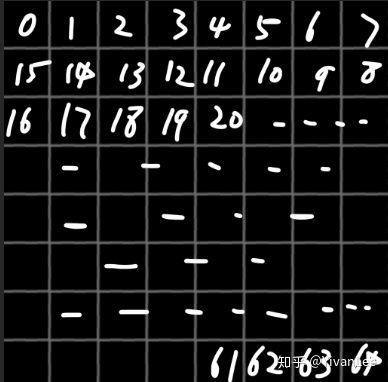 0 1 2 3 4 5 6 7
15 14 13 12 11 10 9 8
16 17 18 19 20 - - - -
- - - - -
- - - -
- - -
- - - - - - - -
61 62 63 64
知乎